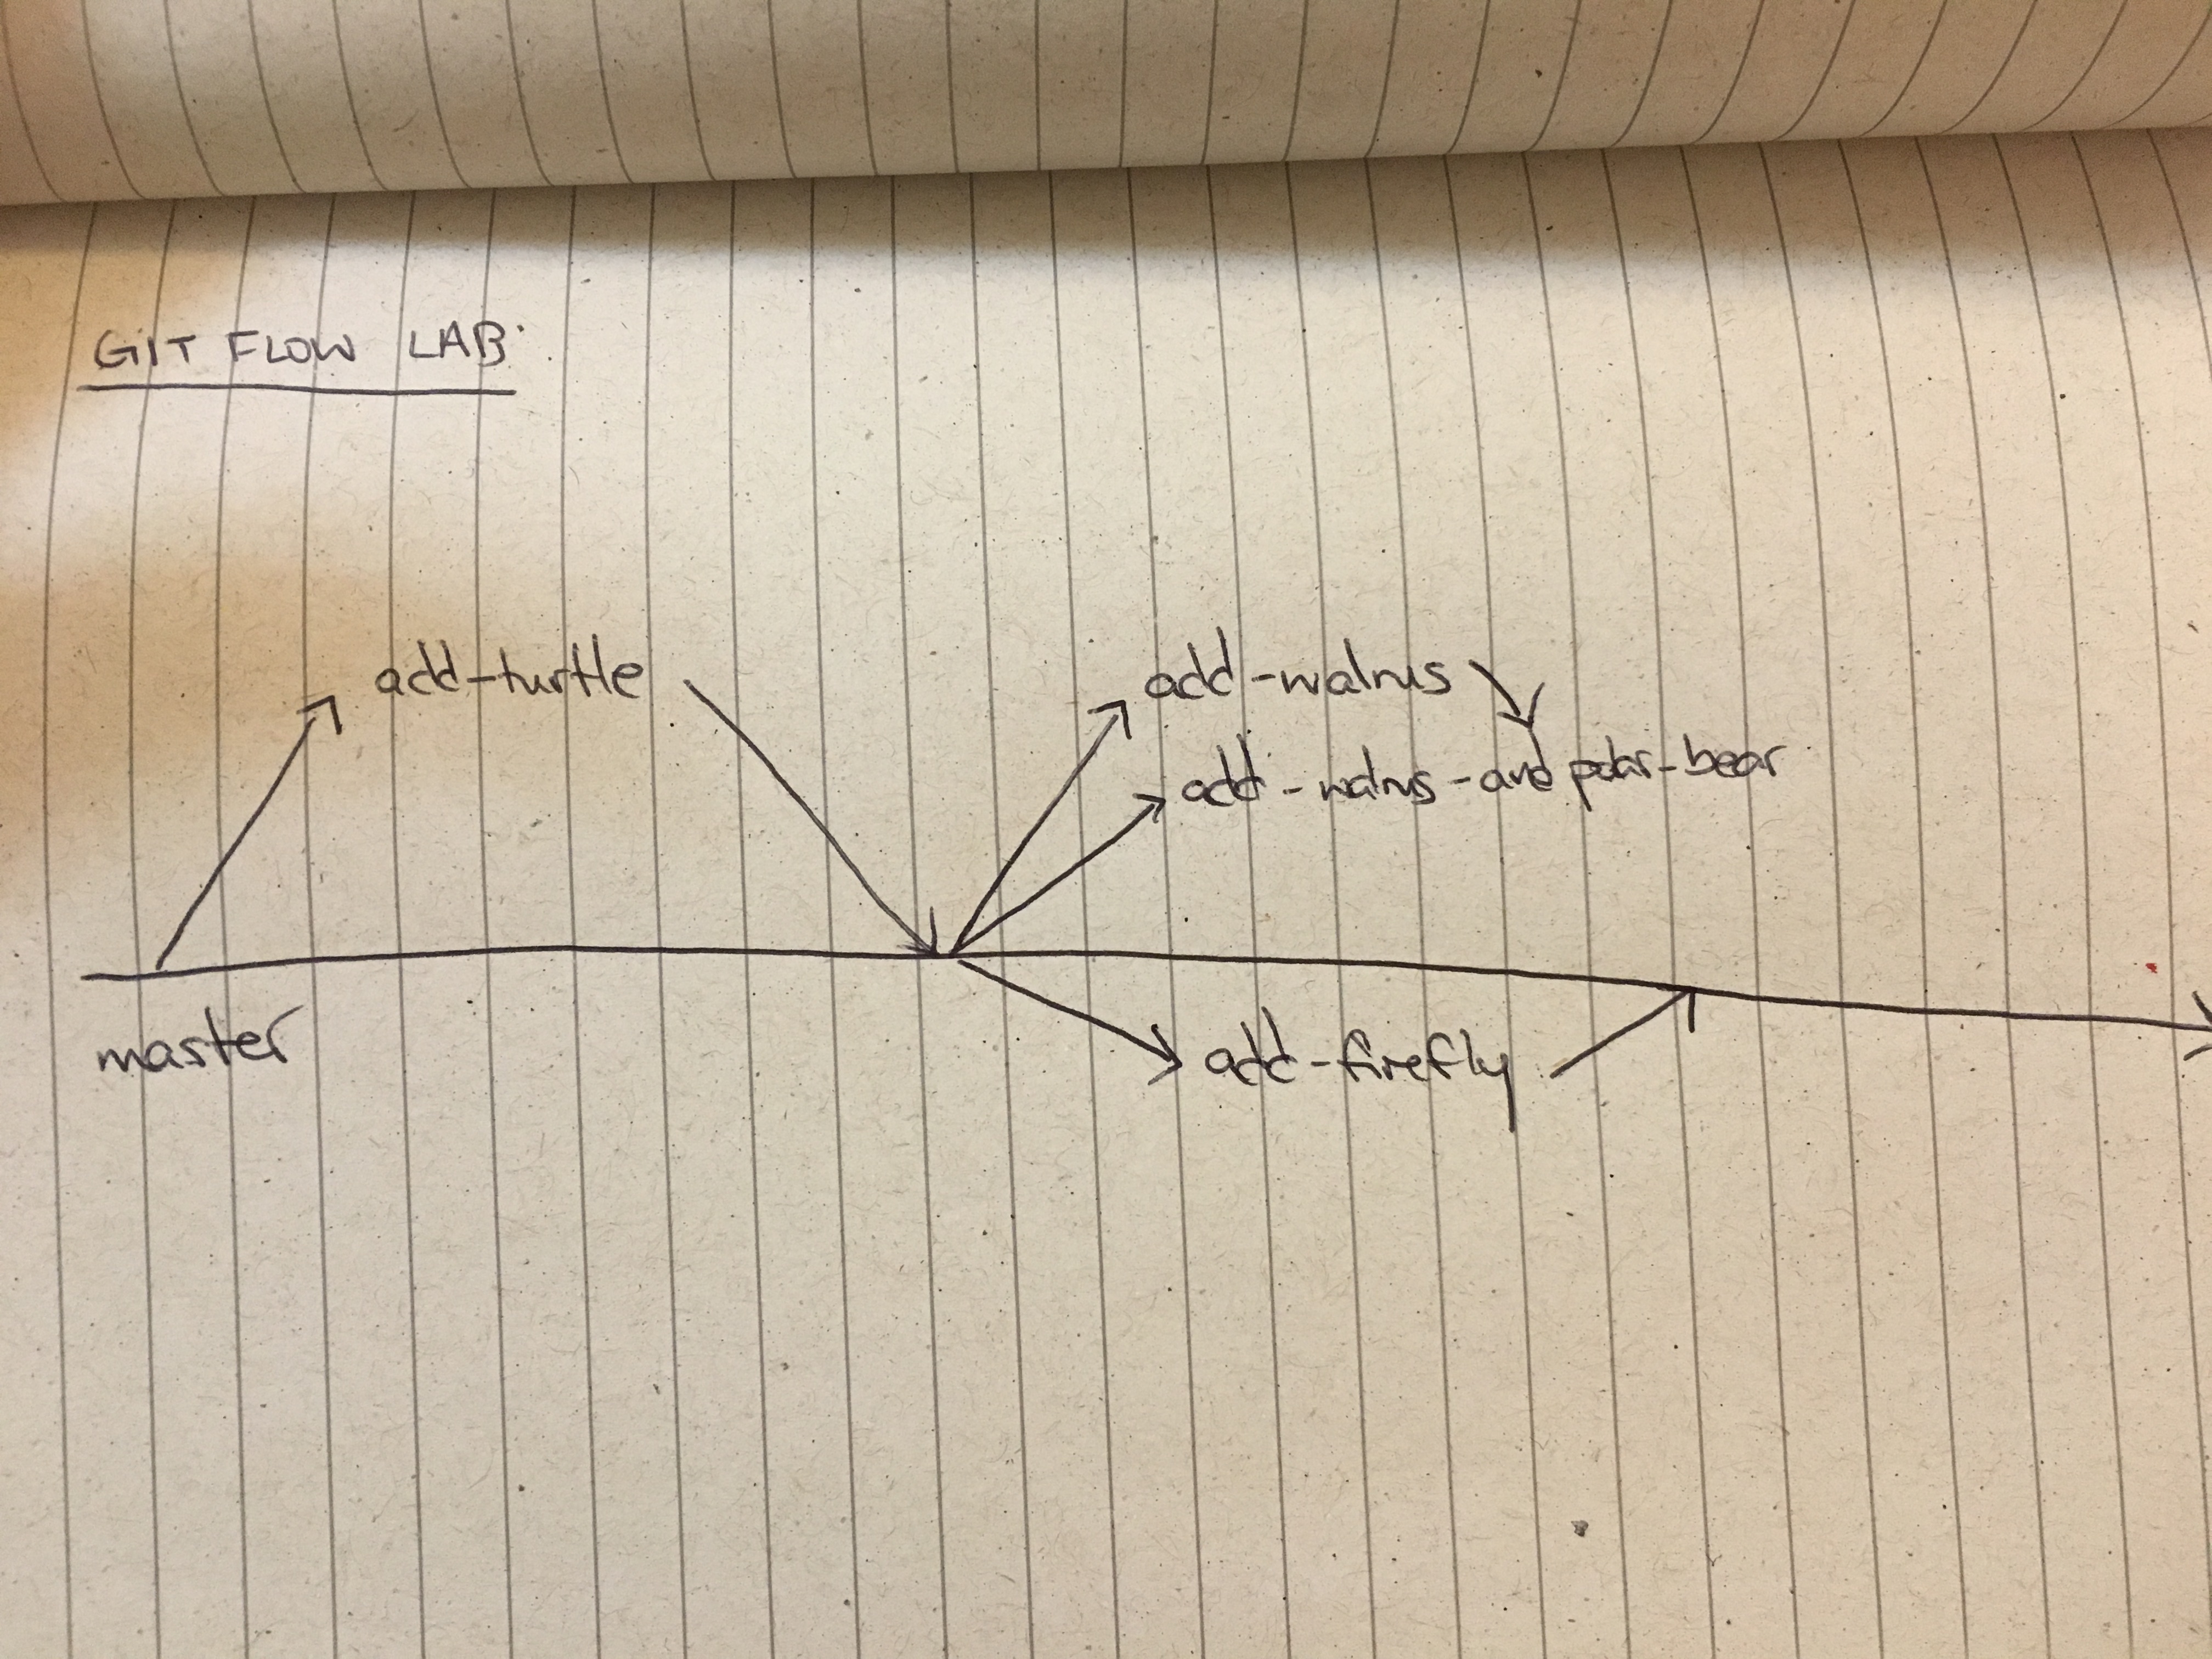 GIT FLOW LAB
add-turtle
add-walrus
add-walrus-and polar-bear
master
add-firefly